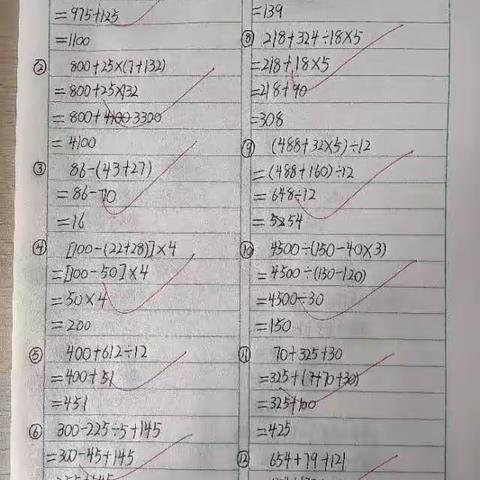 =975+125
=1100
② 800+25×(7+132)
=800+25×132
=800+4100 3300
=4100
③ 86-(43+27)
=86-70
=16
④ [100-(22+28)]×4
=[100-50]×4
=50×4
=200
⑤ 400+612÷12
=400+51
=451
⑥ 300-225÷5+145
=300-45+145
=139
⑧ 218+324÷18×5
=218+18×5
=218+90
=308
⑨ (488+32×5)÷12
=(488+160)÷12
=648÷12
=54
⑩ 4500÷(150-40×3)
=4500÷(150-120)
=4500÷30
=150
⑪ 70+325+30
=325+(70+30)
=325+100
=425
⑫ 654+79+121